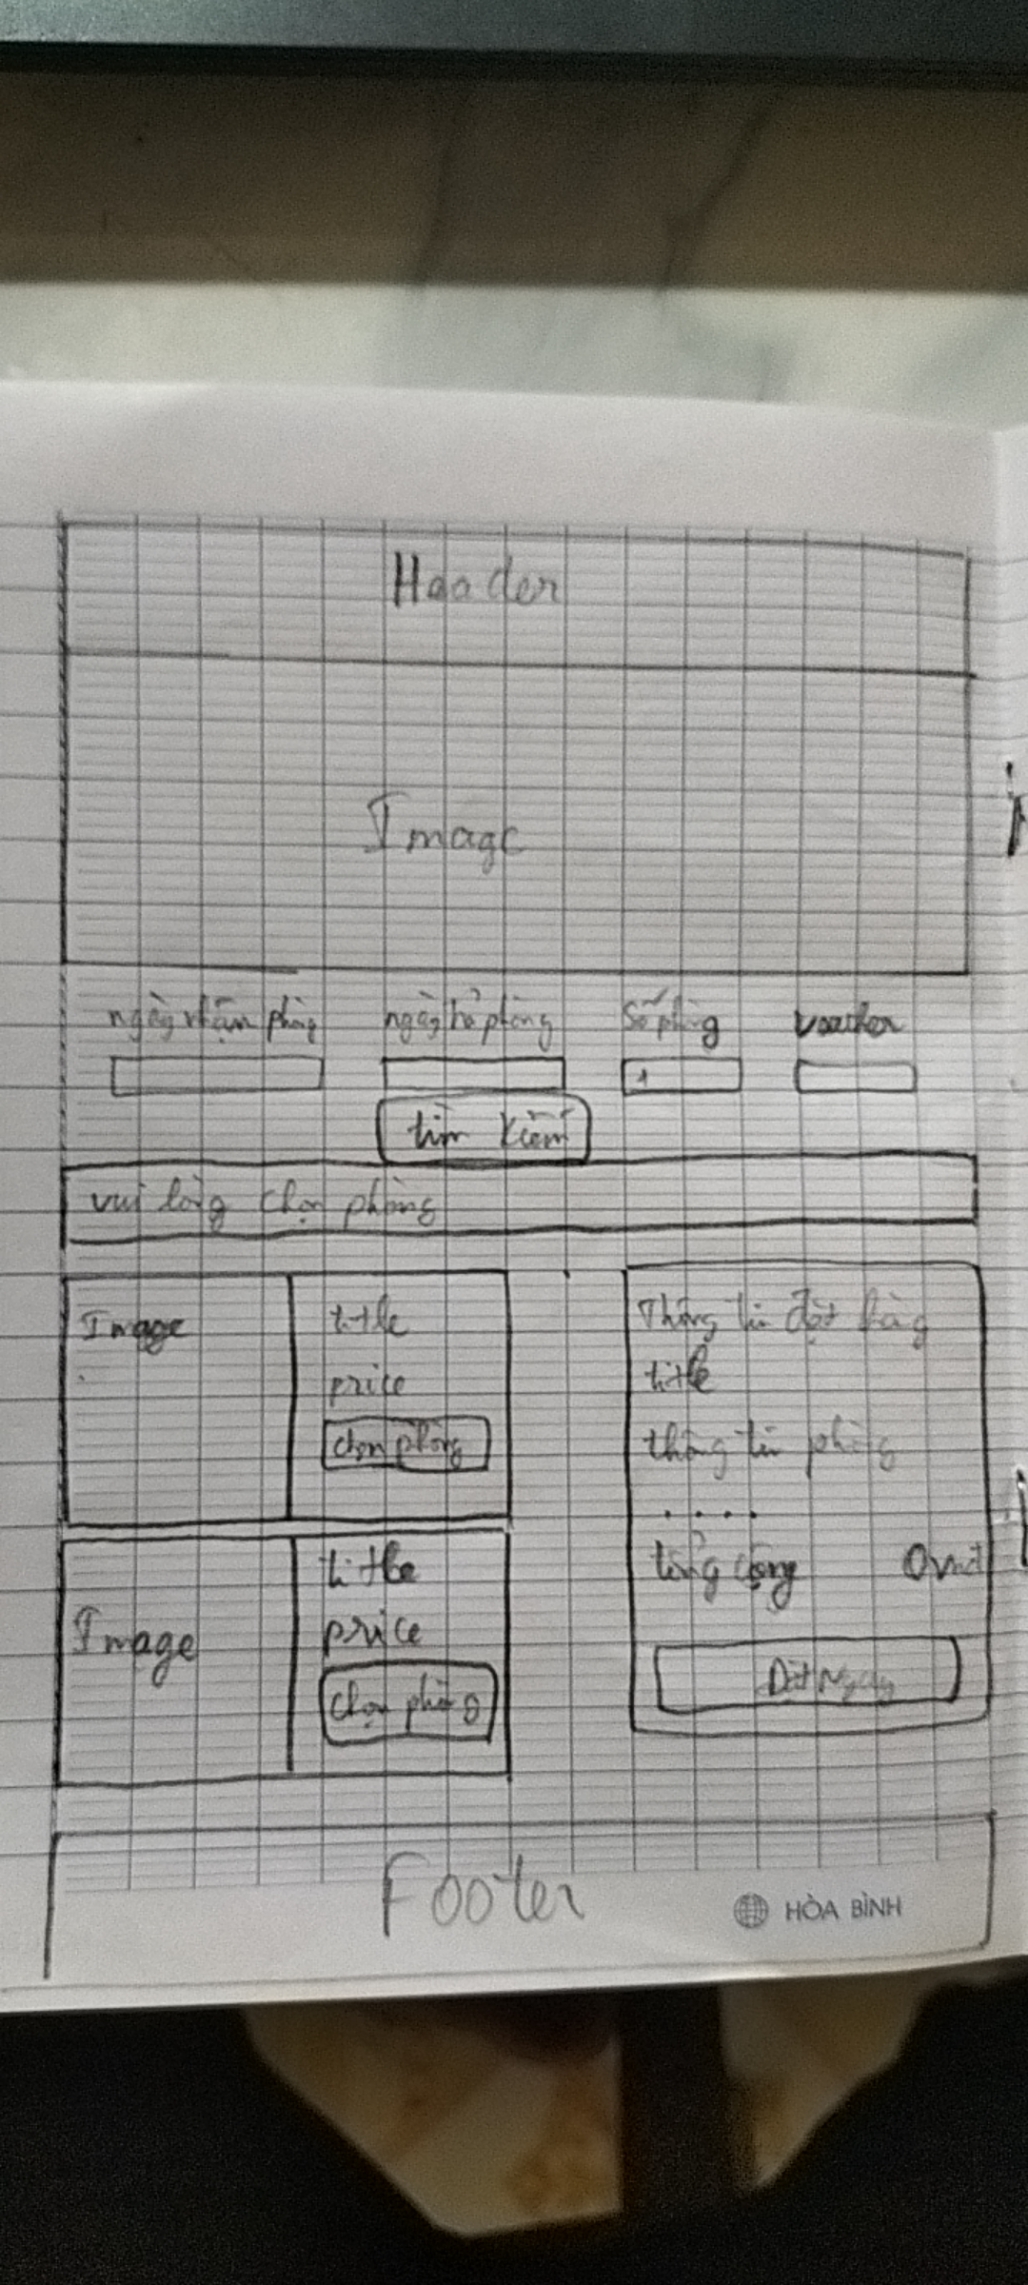 Header
Image
ngày nhận phòng ngày trả phòng Số phòng voucher
1
tìm kiếm
vui lòng chọn phòng
Image
title
price
chọn phòng
Image
title
price
chọn phòng
Thông tin đặt hàng
title
thông tin phòng
.....
tổng cộng 0vnđ
Đặt Ngay
Footer
HÒA BÌNH